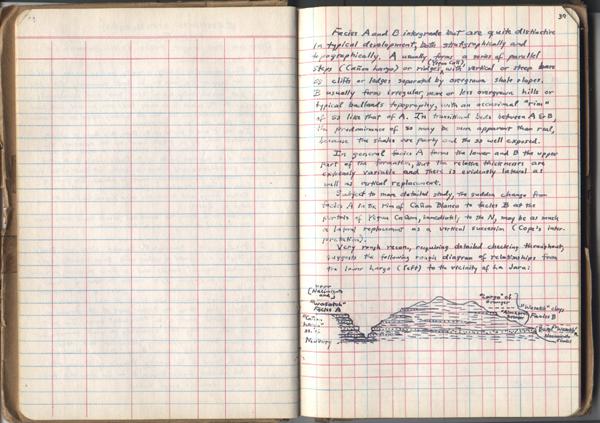 39
Facies A and B intergrade but are quite distinctive
in typical development, both stratigraphically and
topographically. A usually forms a series of parallel
steps (Cañon Largo) or ridges (Yegua Cañ.), with vertical or steep
ss cliffs or ledges separated by overgrown shale slopes.
B usually forms irregular, more or less overgrown hills or
typical badlands topography, with an occasional "rim"
of ss like that of A. In transitional beds between A & B
the predominance of ss may be more apparent than real,
because the shales are purty and the ss well exposed.
In general facies A forms the lower and B the upper
part of the formation, but the relative thicknesses are
extremely variable and there is evidently lateral as
well as vertical replacement.
Subject to more detailed study, the sudden change from
facies A in the rim of Cañon Blanco to facies B at the
portals of Yegua Cañon, immediately to the N, may be as much
a lateral replacement as a vertical succession (Cope's inter-
pretation).
Very rough recon, requiring detailed checking throughout,
suggests the following rough diagram of relationships from
the lower Largo (left) to the vicinity of La Jara:
"Largo" of
Granger
"Wasatch"
Facies A
"Wasatch" clays
Facies B
"Cañon
Largo"
ss.